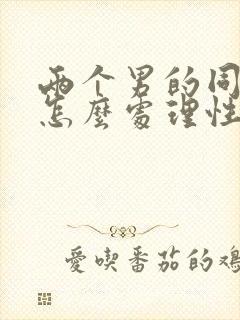 两个男的同
怎麼處理性
愛喫番茄的鴻